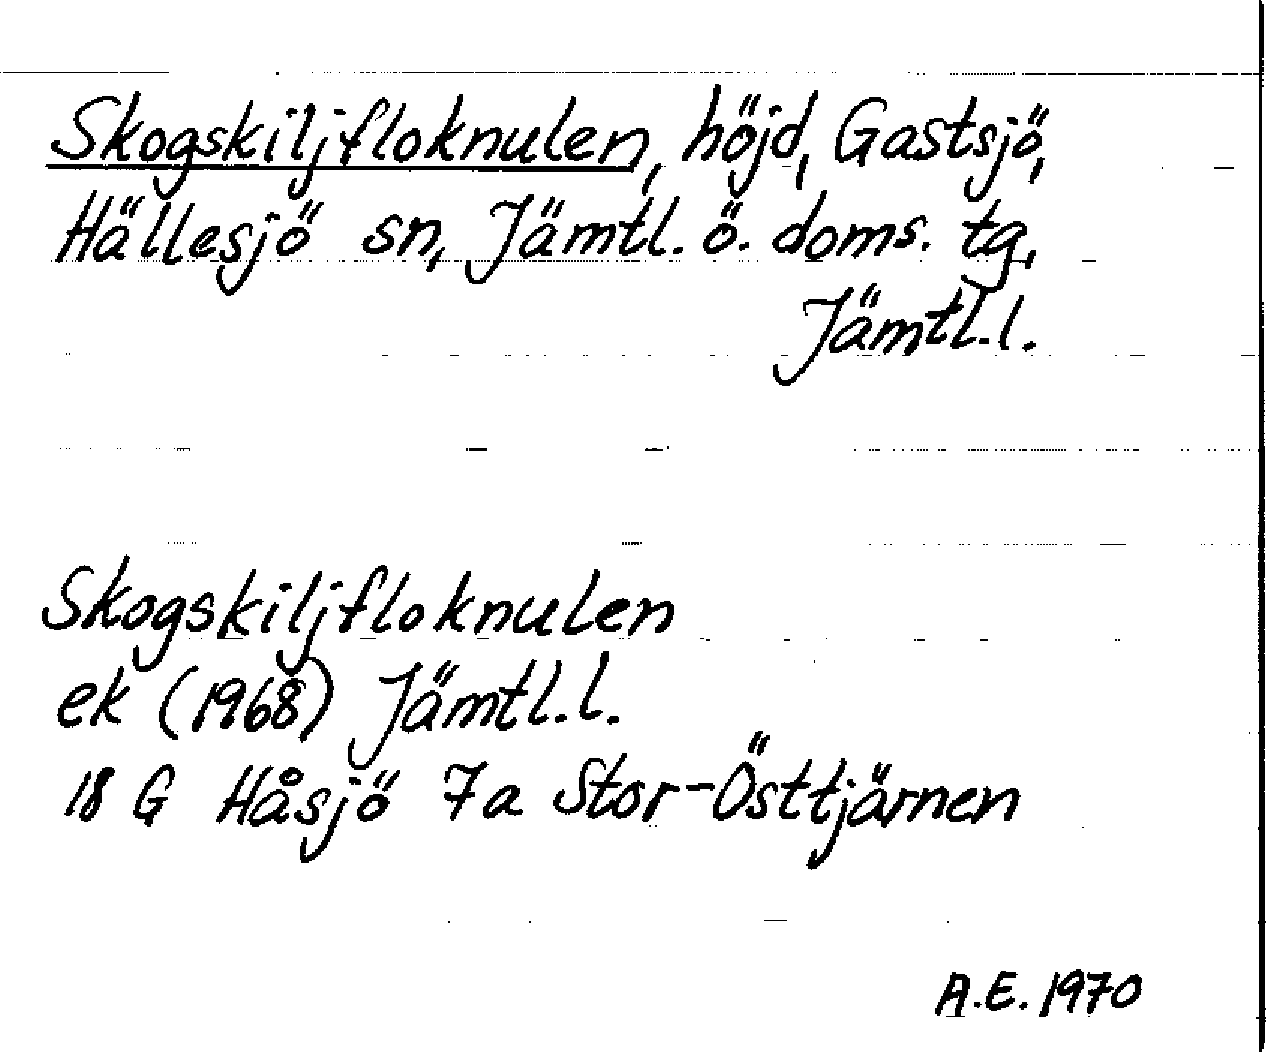 Skogskiljfloknulen, höjd, Gastsjö,
Hällesjö sn, Jämtl. ö. doms. tg,
Jämtl.l.
Skogskiljfloknulen
ek (1968) Jämtl.l.
18 G Håsjö 7a Stor-Östtjärnen
A.E. 1970